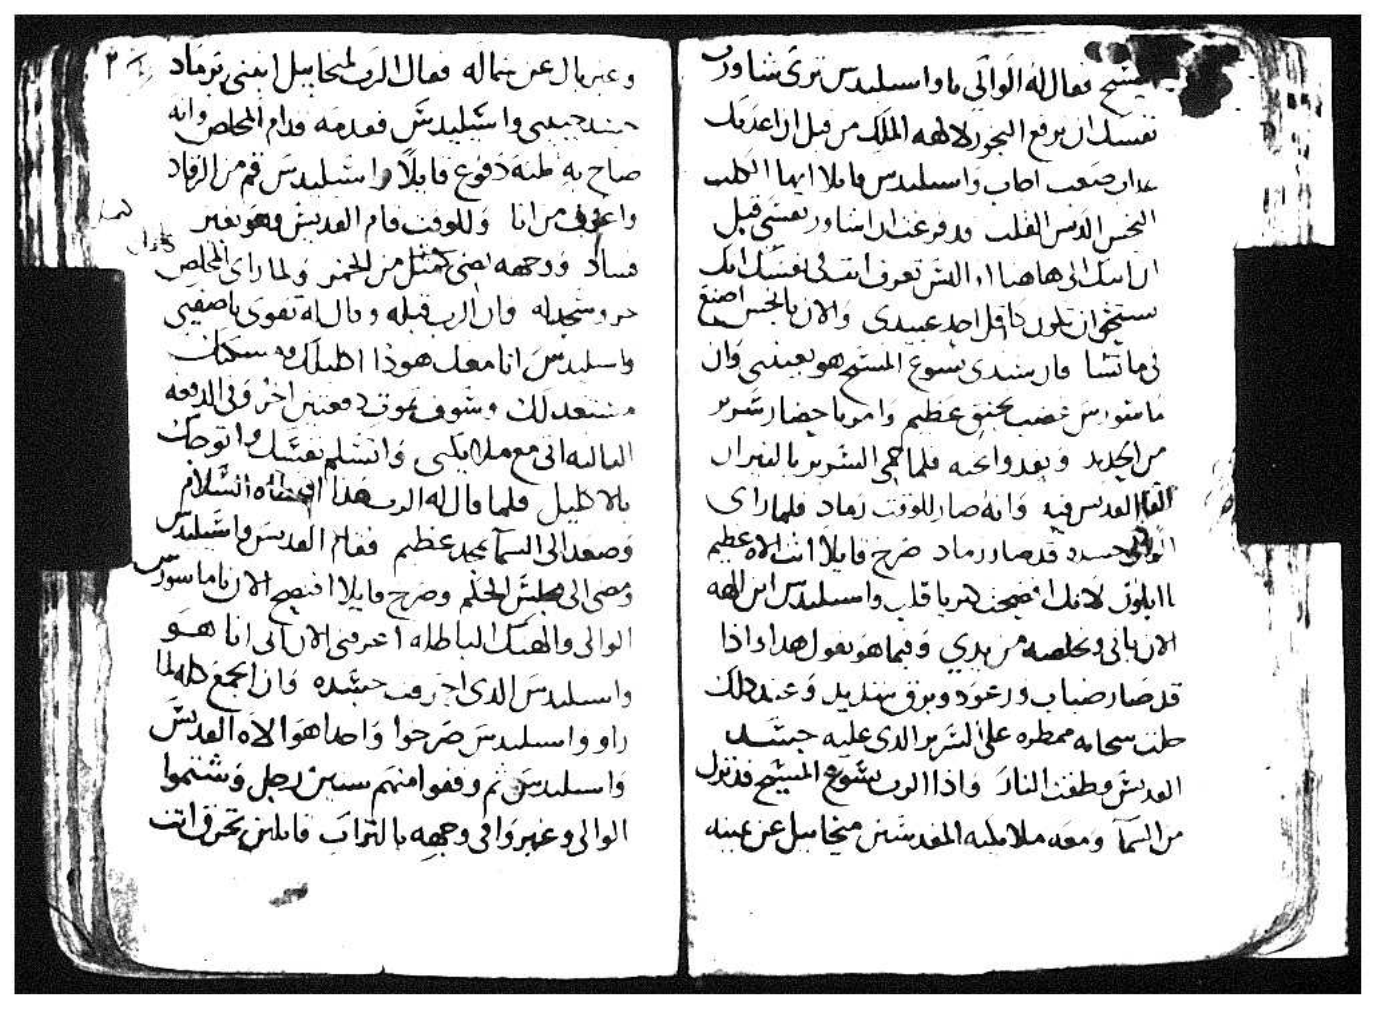 المسيح فقال له الوالي يا واسيليدس ترى تشاور
نفسك ان ترفع البخور لالهة الملك من قبل ان اعذبك
عذاب صعب اجاب واسيليدس قايلا ايها الكلب
النجس الدنس القلب قد فرغت ان اشاور نفسي قبل
ان اتيك الى هاهنا الست تعرف انت في نفسك انك
تستحق ان تكون كاقل احد عبيدي والان يا نجس اصنع
في ما تشا فان سيدي يسوع المسيح هو يعينني وان
ماسورس غضب بحنق عظيم وامر باحضار سرير
من الحديد ويقدوا تحته فلما حمي السرير بالنيران
القا القديس فيه وانه صار للوقت رماد فلما راى
الوالي جسده قد صار رماد صرخ قايلا انت الاه عظيم
يا ابلون لانك افضحت واسيليدس اين الهه
الان ياتي ويخلصه من يدي وفيما هو يقول هدا واذا
قد صار ضباب ورعود وبروق شديد وعند ذلك
حلت سحابه ممطره على السرير الدي عليه جسد
القديس وطفت النار واذا الرب يسوع المسيح قد نزل
من السما ومعه ملايكته المقدسين ميخاييل عن يمينه
وغبريال عن شماله فقال الرب لميخاييل ايتني برماد
جسد حبيبي واسيليدس فقدمه قدام المخلص وانه
صاح به ثلثة دفوع قايلا واسيليدس قم من الرقاد
واعرف من انا وللوقت قام القديس وهو بغير
فساد ووجهه يضي كمثل من الخمر ولما راى المخلص
خر وسجد له وان الرب قبله وقال له تقوى يا صفيي
واسيليدس انا معك هوذا اكليلك
مستعد لك وسوف تموت دفعتين اخر وفي الدفعه
التالته اتي مع ملايكتي واتسلم نفسك واتوجك
بالاكليل فلما قال له الرب هدا اعطاه السلام
وصعد الى السما بمجد عظيم فقام القديس واسيليدس
ومضى الى مجلس الحكم وصرخ قايلا افتضح الان يا ماسورس
الوالي والهتك الباطله اخرى الان اني انا هو
واسيليدس الدي احرقت جسده وان الجمع كله لما
راو واسيليدس صرخوا واحدا هو الاه القديس
واسيليدس تم وقفوا منهم ستين رجل وشتموا
الوالي وغبروا في وجهه بالتراب قايلين تحرق انت